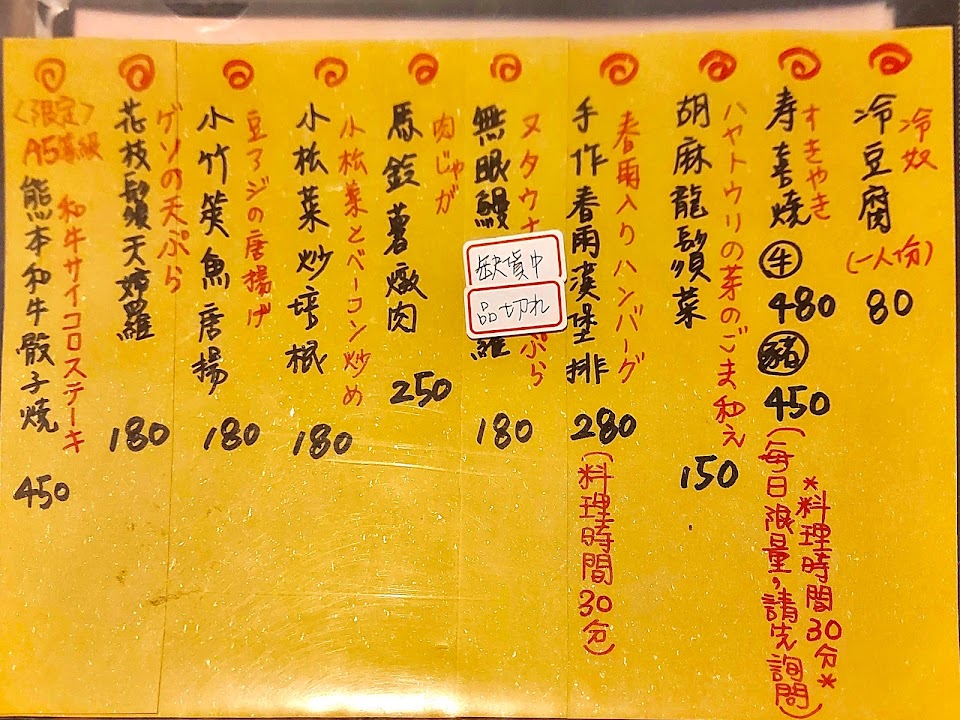 冷奴
冷豆腐
(一人份)
80
すきやき
寿喜燒
牛
480
豬
450
*料理時間30分*
(每日限量,請先詢問)
ハヤトウリの芽のごま和え
胡麻龍鬚菜
150
春雨入りハンバーグ
手作春雨漢堡排
280
(料理時間30分)
ヌタウナ
ぷら
無眼鰻
羅
缺貨中
品切れ
180
肉じゃが
馬鈴薯燉肉
250
小松菜とベーコン炒め
小松菜炒培根
180
豆アジの唐揚げ
小竹筴魚唐揚
180
ゲソの天ぷら
花枝鬚天婦羅
180
<限定>
A5等級
和牛サイコロステーキ
熊本和牛骰子燒
450